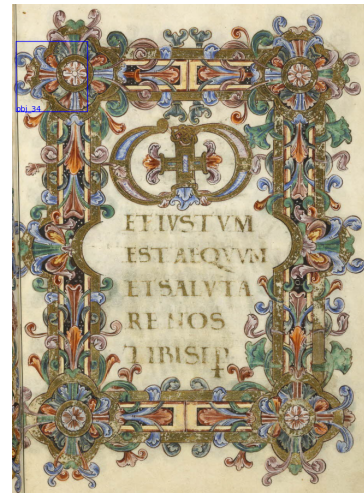 obj_34
ET IVSTVM
EST AEQVVM
ET SALVTA
RE NOS
TIBI